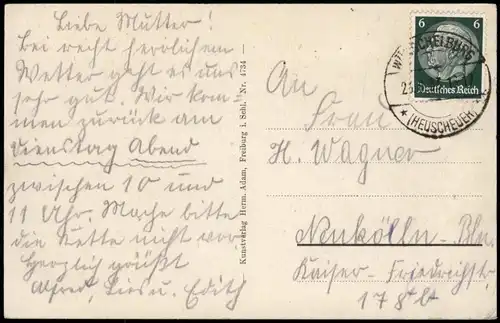 Liebe Mutter!
Bei recht herrlichem
Wetter geht es uns
sehr gut. Wir kom-
men zurück am
Dienstag Abend
zwischen 10 und
11 Uhr. Mache bitte
die Kette nicht vor
Herzlich grüßt
Alfred, u. Edith
Kunstverlag Herm. Adam, Freiburg i. Schl. Nr. 4734
6 6
Deutsches Reich
WÜNSCHELBURG
23
★ (HEUSCHEUER) ★
An
Frau
H. Wagner
Neukölln-Bln
Kaiser-Friedrichstr
178